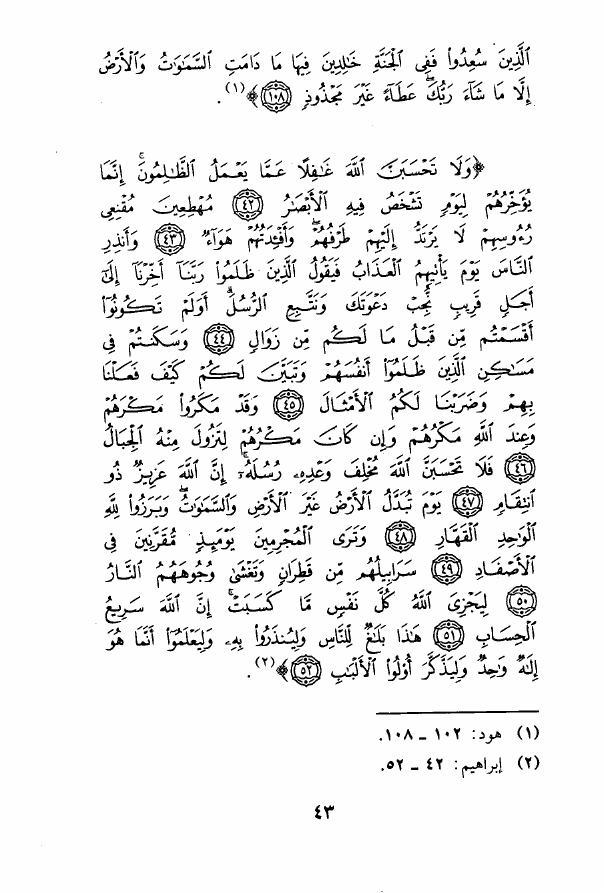 ٱلَّذِينَ سُعِدُواْ فَفِى ٱلْجَنَّةِ خَٰلِدِينَ فِيهَا مَا دَامَتِ ٱلسَّمَٰوَٰتُ وَٱلْأَرْضُ
إِلَّا مَا شَآءَ رَبُّكَۖ عَطَآءً غَيْرَ مَجْذُوذٍ ﴿١٠٨﴾ ﴾(١).
﴿وَلَا تَحْسَبَنَّ ٱللَّهَ غَٰفِلًا عَمَّا يَعْمَلُ ٱلظَّٰلِمُونَۚ إِنَّمَا
يُؤَخِّرُهُمْ لِيَوْمٍ تَشْخَصُ فِيهِ ٱلْأَبْصَٰرُ ﴿٤٢﴾ مُهْطِعِينَ مُقْنِعِى
رُءُوسِهِمْ لَا يَرْتَدُّ إِلَيْهِمْ طَرْفُهُمْۖ وَأَفْـِٔدَتُهُمْ هَوَآءٌ ﴿٤٣﴾ وَأَنذِرِ
ٱلنَّاسَ يَوْمَ يَأْتِيهِمُ ٱلْعَذَابُ فَيَقُولُ ٱلَّذِينَ ظَلَمُواْ رَبَّنَآ أَخِّرْنَآ إِلَىٰٓ
أَجَلٍ قَرِيبٍ نُّجِبْ دَعْوَتَكَ وَنَتَّبِعِ ٱلرُّسُلَۗ أَوَلَمْ تَكُونُوٓاْ
أَقْسَمْتُم مِّن قَبْلُ مَا لَكُم مِّن زَوَالٍ ﴿٤٤﴾ وَسَكَنتُمْ فِى
مَسَٰكِنِ ٱلَّذِينَ ظَلَمُوٓاْ أَنفُسَهُمْ وَتَبَيَّنَ لَكُمْ كَيْفَ فَعَلْنَا
بِهِمْ وَضَرَبْنَا لَكُمُ ٱلْأَمْثَالَ ﴿٤٥﴾ وَقَدْ مَكَرُواْ مَكْرَهُمْ
وَعِندَ ٱللَّهِ مَكْرُهُمْ وَإِن كَانَ مَكْرُهُمْ لِتَزُولَ مِنْهُ ٱلْجِبَالُ
﴿٤٦﴾ فَلَا تَحْسَبَنَّ ٱللَّهَ مُخْلِفَ وَعْدِهِۦ رُسُلَهُۥٓۗ إِنَّ ٱللَّهَ عَزِيزٌ ذُو
ٱنتِقَامٍ ﴿٤٧﴾ يَوْمَ تُبَدَّلُ ٱلْأَرْضُ غَيْرَ ٱلْأَرْضِ وَٱلسَّمَٰوَٰتُۖ وَبَرَزُواْ لِلَّهِ
ٱلْوَٰحِدِ ٱلْقَهَّارِ ﴿٤٨﴾ وَتَرَى ٱلْمُجْرِمِينَ يَوْمَئِذٍ مُّقَرَّنِينَ فِى
ٱلْأَصْفَادِ ﴿٤٩﴾ سَرَابِيلُهُم مِّن قَطِرَانٍ وَتَغْشَىٰ وُجُوهَهُمُ ٱلنَّارُ
﴿٥٠﴾ لِيَجْزِىَ ٱللَّهُ كُلَّ نَفْسٍ مَّا كَسَبَتْۚ إِنَّ ٱللَّهَ سَرِيعُ
ٱلْحِسَابِ ﴿٥١﴾ هَٰذَا بَلَٰغٌ لِّلنَّاسِ وَلِيُنذَرُواْ بِهِۦ وَلِيَعْلَمُوٓاْ أَنَّمَا هُوَ
إِلَٰهٌ وَٰحِدٌ وَلِيَذَّكَّرَ أُوْلُواْ ٱلْأَلْبَٰبِ ﴿٥٢﴾ ﴾(٢).
(١) هود: ١٠٢ ــ ١٠٨.
(٢) إبراهيم: ٤٢ ــ ٥٢.
٤٣